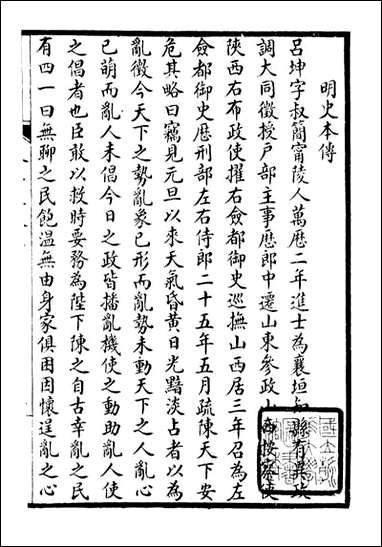 明史本傳
呂坤字叔簡甯陵人萬厯二年進士為襄垣知縣有異政
調大同徵授戶部主事厯郎中遷山東參政山西按察使
陝西右布政使擢右僉都御史巡撫山西居三年召為左
僉都御史厯刑部左右侍郎二十五年五月疏陳天下安
危其略曰竊見元旦以來天氣昏黃日光黯淡占者以為
亂徵今天下之勢亂象已形而亂勢未動天下之人亂心
已萌而亂人未倡今日之政皆播亂機使之動助亂人使
之倡者也臣敢以救時要務為陛下陳之自古幸亂之民
有四一曰無聊之民飽溫無由身家俱困因懷逞亂之心